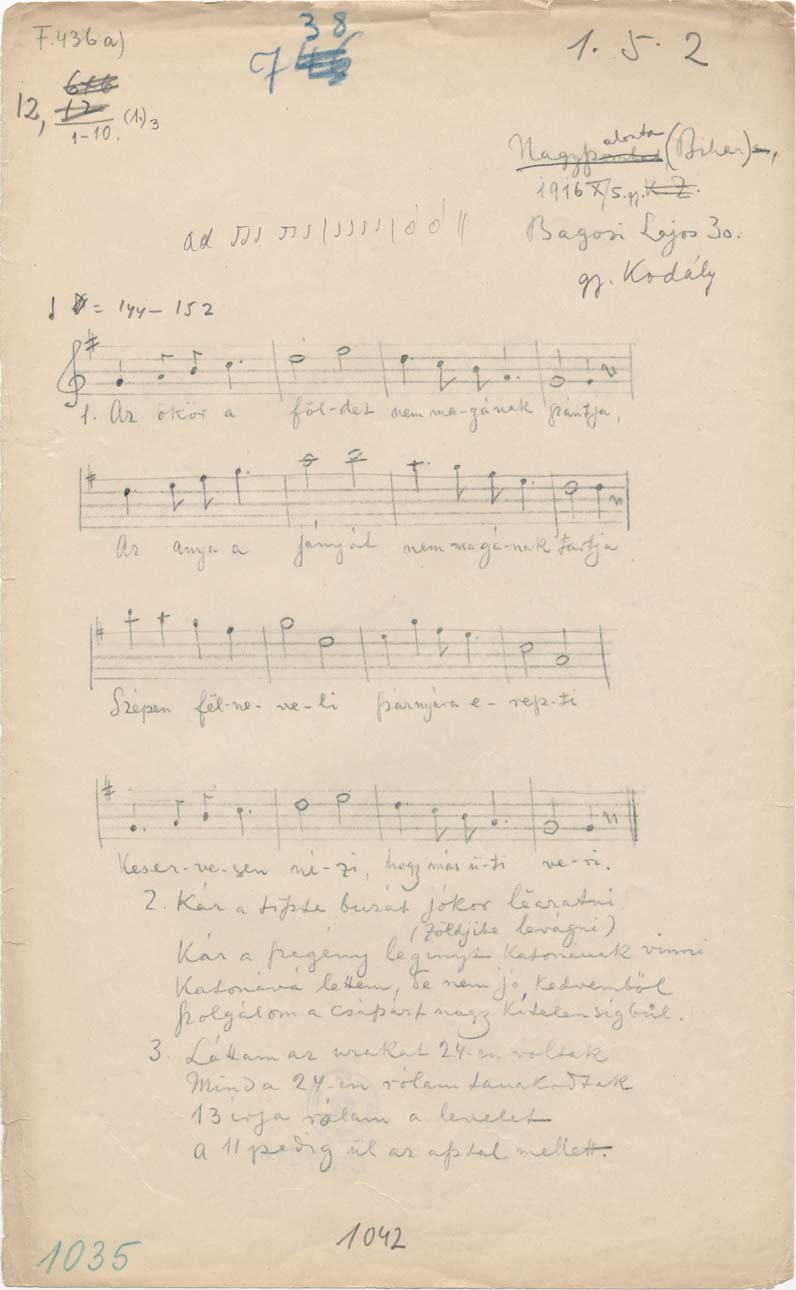 F.436a)
38
7
1. 5. 2
12,
1-10. (1.)3
Nagyszalonta (Bihar),
1916 X/5. gy. K Z.
ad
Bagosi Lajos 30.
gy. Kodály
= 144 – 152
1. Az ökör a föl-det nem ma-gá-nak szántja,
Az anya a jányát nem magá-nak tartja
Szépen fël-ne-ve-li szárnyára e-resz-ti
Keser-ve-sen né-zi, hogy más ü-ti ve-ri.
2. Kár a tiszta buzát jókor lëaratni
(Zöldjibe levágni)
Kár a szegény legínyt katonának vinni
Katonává lettem, de nem jó kedvemből
Szolgálom a császárt nagy kítelensígbűl.
3. Láttam az urakat 24-en voltak
Mind a 24-en rólam tanakodtak
13 írja rólam a levelet
A 11 pedig űl az asztal mellett.
1035
1042